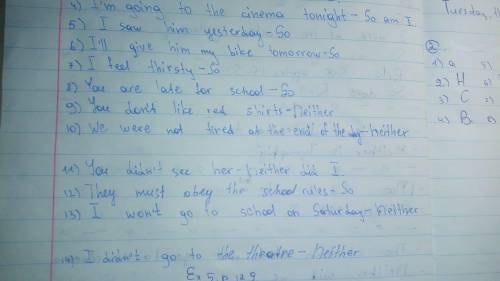 4) I'm going to the cinema tonight - So am I.
5) I saw him yesterday - So
6) I'll give him my bike tomorrow - So
7) I feel thirsty - So
8) You are late for school - So
9) You don't like red shirts - Neither
10) We were not tired at the end of the day - Neither
11) You didn't see her - Neither did I.
12) They must obey the school rules - So
13) I won't go to school on Saturday - Neither
14) I didn't go to the theatre - Neither
Ex 5, p. 129
Tuesday, th
2.
1) a 5)
2) H
3) C
4) B